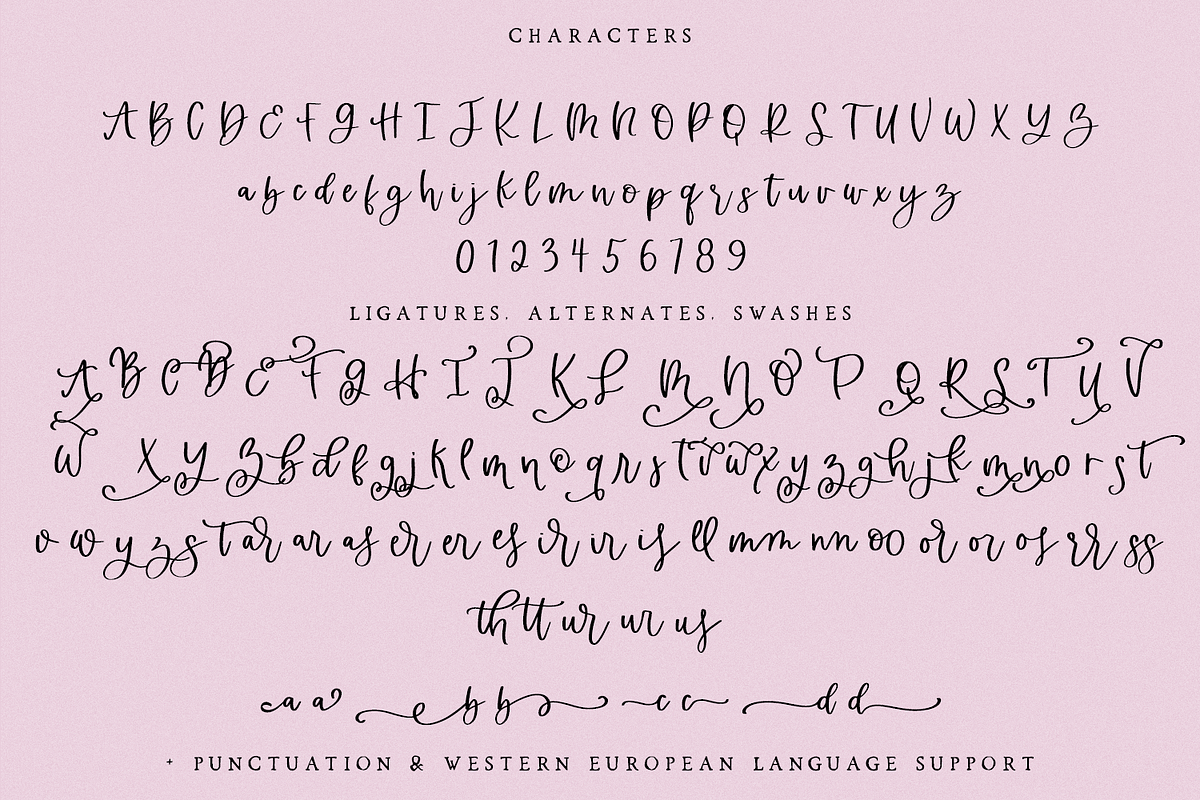 CHARACTERS
A B C D E F G H I J K L M N O P Q R S T U V W X Y Z
a b c d e f g h i j k l m n o p q r s t u v w x y z
0 1 2 3 4 5 6 7 8 9
LIGATURES, ALTERNATES, SWASHES
A B C D E F G H I J K L M N O P Q R S T U V
W X Y Z b d f g j k l m n o q r s t v w x y z g h j k m n o r s t
v w y z s t ar ar as er er es ir ir is ll mm nn oo or or os rr ss
th tt ur ur us
a a e b b c c d d
+ PUNCTUATION & WESTERN EUROPEAN LANGUAGE SUPPORT